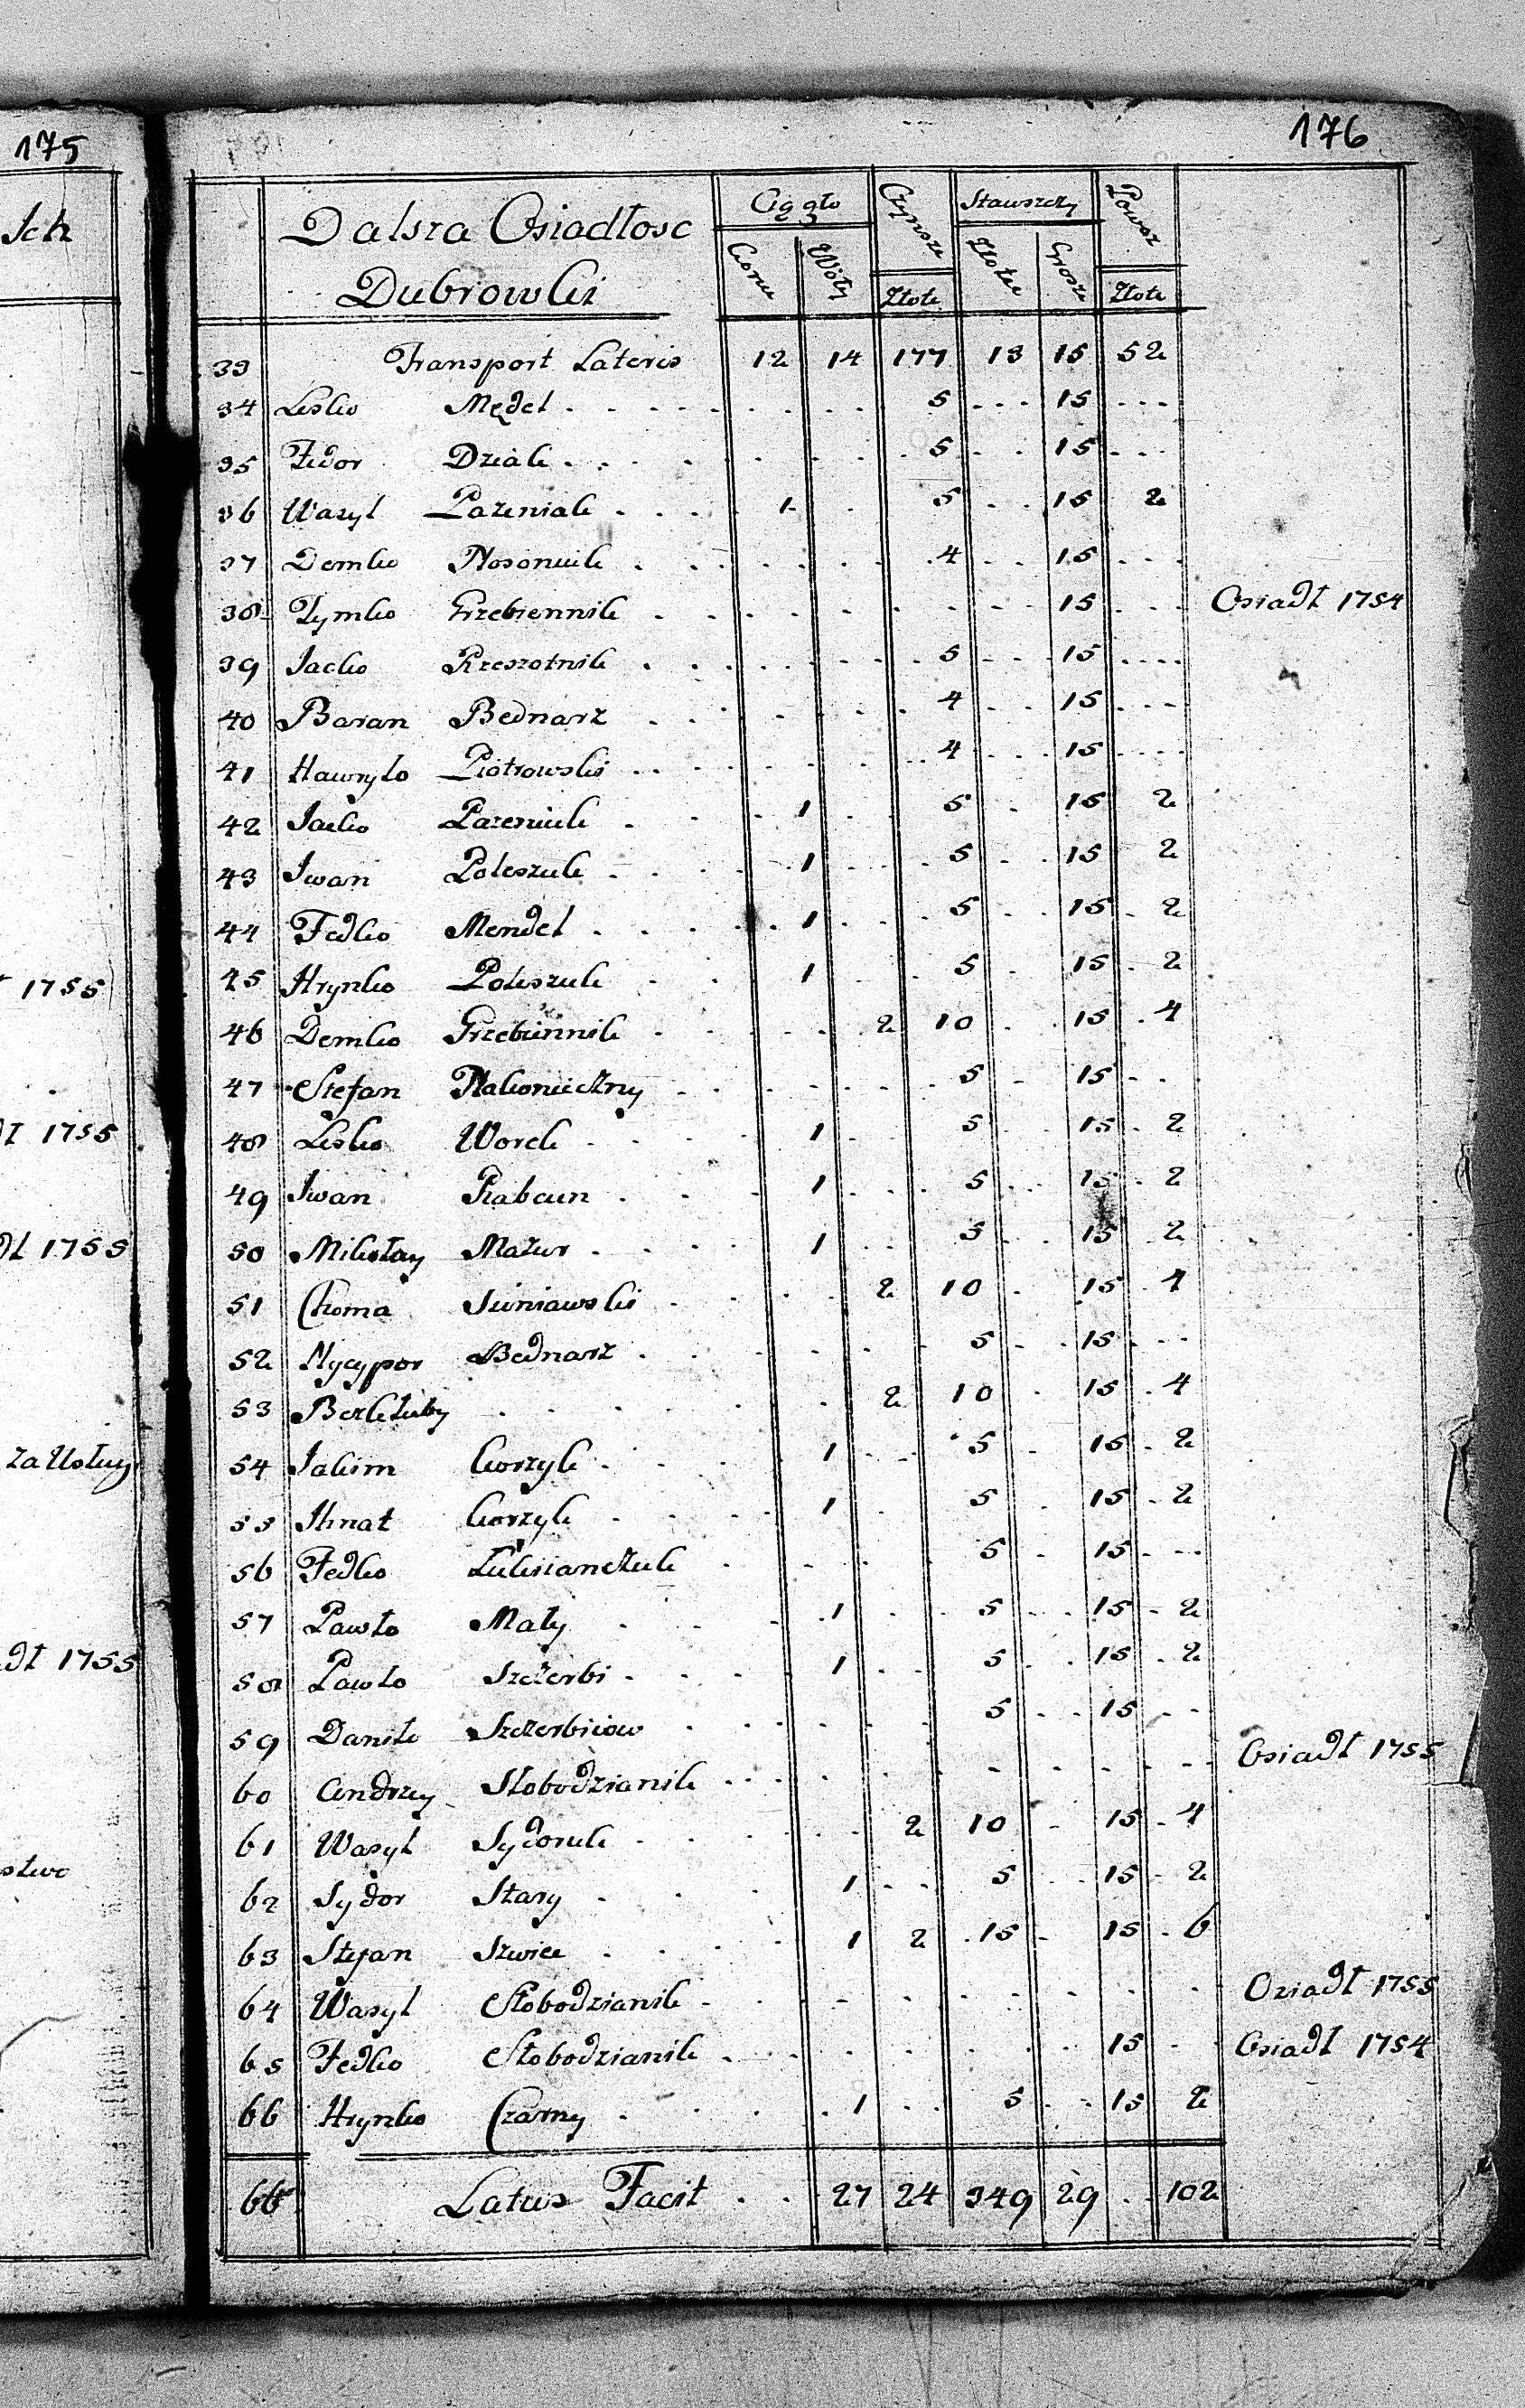 175
Sch
1755
1755
1755
za Usługi
1755
stwo
176
Dalsza Osiadłosc
Dubrowki
Ciągło Czynsze Stawszczy Powoz
Konie Woły Złote Złote Grosze Złote
33 Transport Lateris 12 14 177 13 15 52
34 Lesko Mędel 5 15
35 Fedor Dziak 5 15
36 Wasyl Pazeniak 1 5 15 2
37 Demko 4 15
38 Tymko Grzebiennik 15 Osiadł 1754
39 Jacko Rzeszotnik 5 15
40 Baran Bednarz 4 15
41 Hawryło Piotrowski 4 15
42 Jacko Pazeniuk 1 5 15 2
43 Iwan Poleszuk 1 5 15 2
44 Fedko Mendel 1 5 15 2
45 Hrynko Poleszuk 1 5 15 2
46 Demko Grzebiennik 2 10 15 4
47 Stefan Nakonieczny 5 15
48 Lesko Worek 1 5 15 2
49 Iwan 1 5 15 2
50 Mikołay Mazur 1 5 15 2
51 Choma Sieniawski 2 10 15 4
52 Nycypor Bednarz 5 15
53 2 10 15 4
54 Jakim Korzyk 1 5 15 2
55 Ihnat Korzyk 1 5 15 2
56 Fedko Łukianczuk 5 15
57 Pawło Mały 1 5 15 2
58 Pawło Szczerbi 1 5 15 2
59 Daniło Szczerbiiow 5 15
60 Andrzey Słobodzianik Osiadł 1755
61 Wasyl Sydoruk 2 10 15 4
62 Sydor Stary 1 5 15 2
63 Stefan Szwiec 1 2 15 15 6
64 Wasyl Słobodzianik Oziadł 1755
65 Fedko Słobodzianik 15 Osiadł 1754
66 Hrynko Czarny 1 5 15 2
66 Latus Facit 27 24 349 29 102